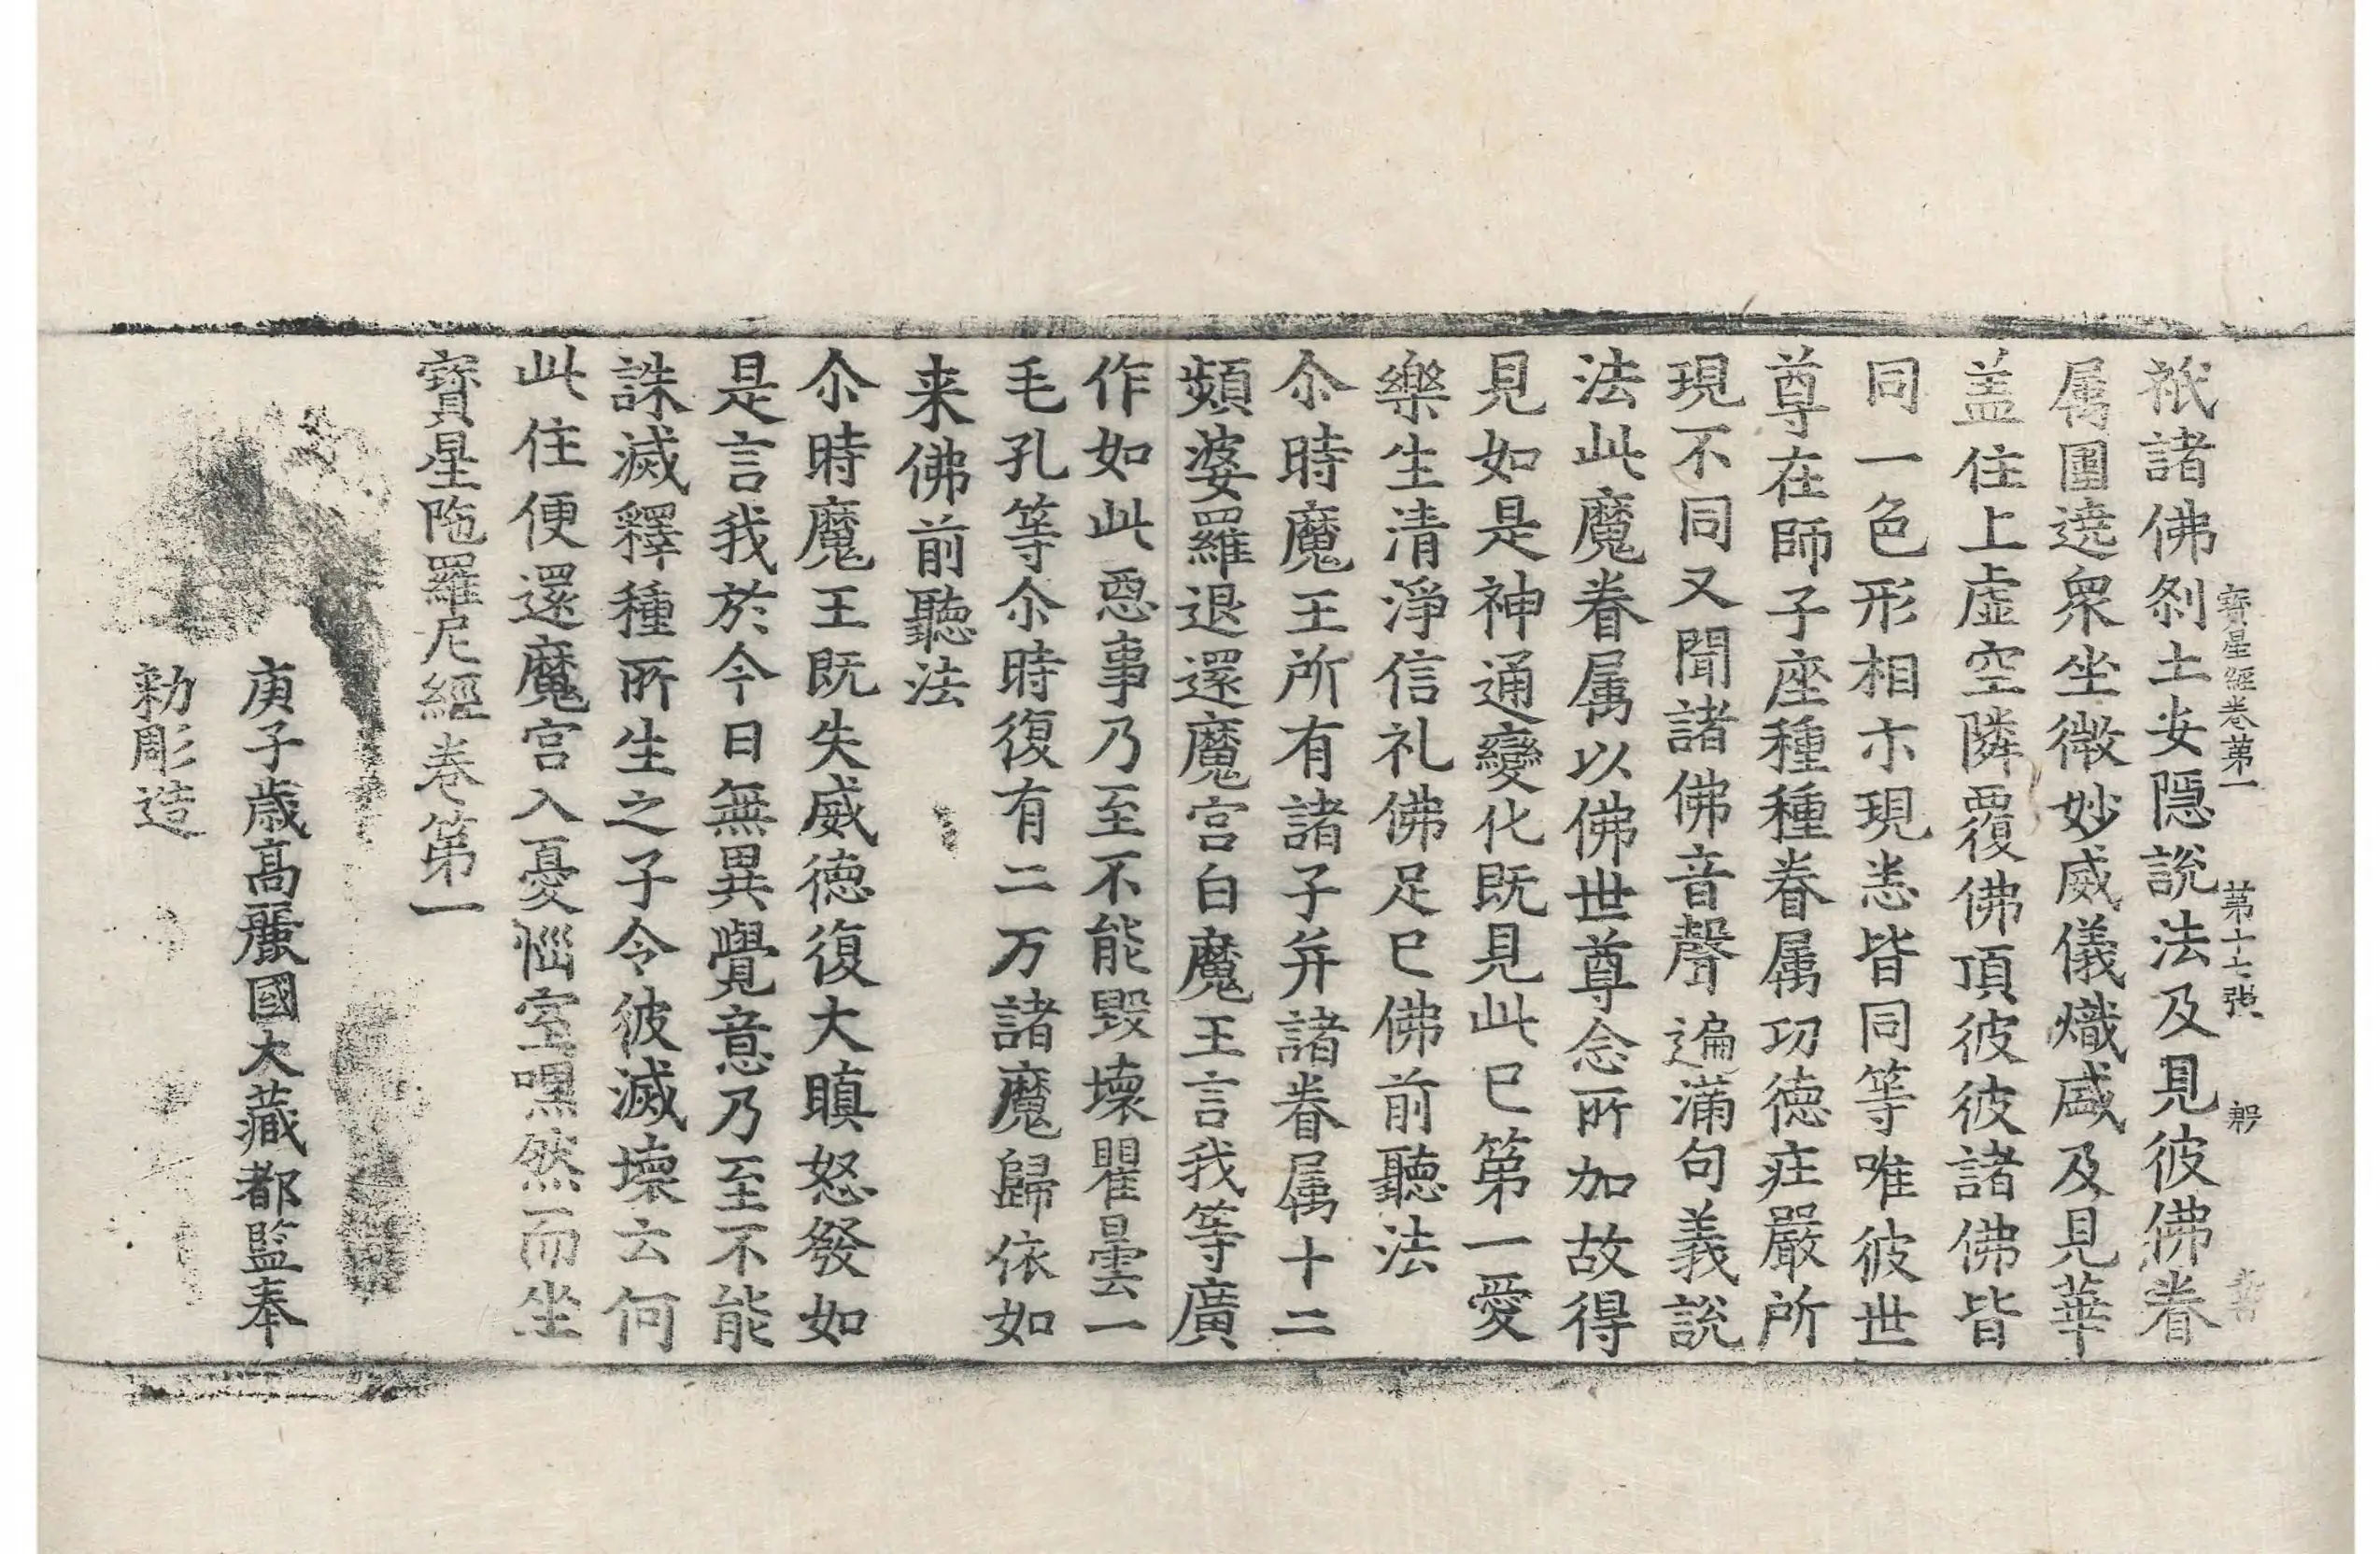 祇諸佛刹土安隱說法及見彼佛眷
属圍遶衆坐微妙威儀熾盛及見華
盖住上虛空隣覆佛頂彼彼諸佛皆
同一色形相亦現悉皆同等唯彼世
尊在師子座種種眷属功德莊嚴所
現不同又聞諸佛音聲遍滿句義說
法此魔眷属以佛世尊念所加故得
見如是神通變化既見此已第一愛
樂生清淨信礼佛足已佛前聽法
尒時魔王所有諸子并諸眷属十二
頻婆羅退還魔宫白魔王言我等廣
作如此惡事乃至不能毀壞瞿曇一
毛孔等尒時復有二万諸魔歸依如
来佛前聽法
尒時魔王既失威德復大瞋怒發如
是言我於今日無異覺意乃至不能
誅滅釋種所生之子令彼滅壞云何
此住便還魔宫入憂惱室嘿然而坐
寶星陁羅尼經卷第一
庚子歳高麗國大藏都監奉
勑彫造
寶星經卷第一 第十七張